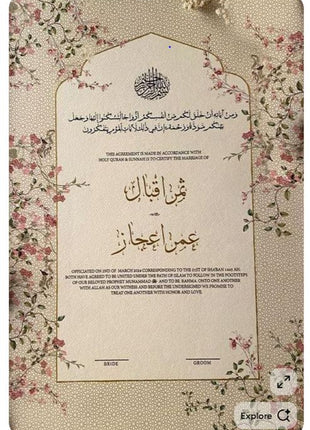 بسم الله الرحمن الرحيم
ومن آياته أن خلق لكم من أنفسكم أزواجا لتسكنوا إليها وجعل
بينكم مودة ورحمة إن في ذلك لآيات لقوم يتفكرون
THIS AGREEMENT IS MADE IN ACCORDANCE WITH
HOLY QURAN & SUNNAH TO CERTIFY THE MARRIAGE OF
ثمر اقبال
عمر اعجاز
OFFICIATED ON 2ND OF MARCH 2024 CORRESPONDING TO THE 21ST OF SHABAN 1445 AH,
BOTH HAVE AGREED TO BE UNITED UNDER THE PATH OF ISLAM TO FOLLOW IN THE FOOTSTEPS
OF OUR BELOVED PROPHET MUHAMMAD ﷺ AND TO BE, RAHMA, ONTO ONE ANOTHER
WITH ALLAH AS OUR WITNESS AND BEFORE THE UNDERSIGNED WE PROMISE TO
TREAT ONE ANOTHER WITH HONOR AND LOVE.
BRIDE GROOM
Explore